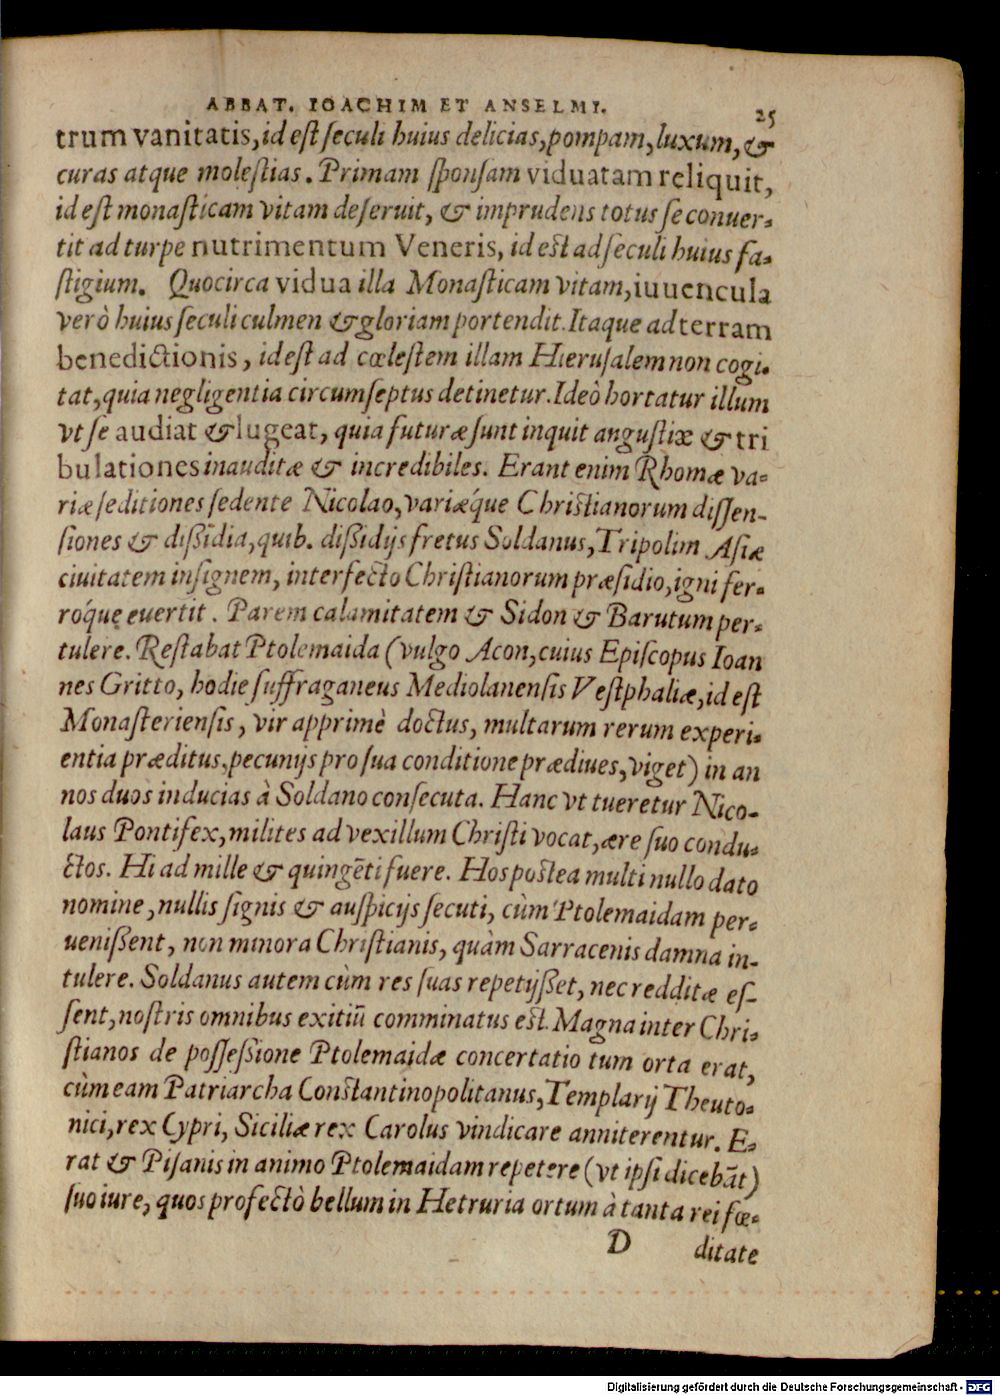 ABBAT. IOACHIM ET ANSELMI. 25
trum vanitatis, id est seculi huius delicias, pompam, luxum, &
curas atque molestias. Primam sponsam viduatam reliquit,
id est monasticam vitam deseruit, & imprudens totus se conuer-
tit ad turpe nutrimentum Veneris, id est ad seculi huius fa-
stigium. Quocirca vidua illa Monasticam vitam, iuuencula
verò huius seculi culmen & gloriam portendit. Itaque ad terram
benedictionis, id est ad cœlestem illam Hierusalem non cogi-
tat, quia negligentia circumseptus detinetur. Ideò hortatur illum
vt se audiat & lugeat, quia futuræ sunt inquit angustiæ & tri
bulationes inauditæ & incredibiles. Erant enim Rhomæ va-
riæ seditiones sedente Nicolao, variǽque Christianorum dissen-
siones & dißidia, quib. dißidijs fretus Soldanus, Tripolim Asiæ
ciuitatem insignem, interfecto Christianorum præsidio, igni fer-
ró́que euertit. Parem calamitatem & Sidon & Barutum per-
tulere. Restabat Ptolemaida (vulgo Acon, cuius Episcopus Ioan
nes Gritto, hodie suffraganeus Mediolanensis Vestphaliæ, id est
Monasteriensis, vir apprimè doctus, multarum rerum experi-
entia præditus, pecunijs pro sua conditione prædiues, viget) in an
nos duos inducias à Soldano consecuta. Hanc vt tueretur Nico-
laus Pontifex, milites ad vexillum Christi vocat, ære suo condu-
ctos. Hi ad mille & quingēti fuere. Hos postea multi nullo dato
nomine, nullis signis & auspicijs secuti, cùm Ptolemaidam per-
uenißent, non minora Christianis, quàm Sarracenis damna in-
tulere. Soldanus autem cùm res suas repetijßet, nec redditæ es-
sent, nostris omnibus exitiū comminatus est. Magna inter Chri-
stianos de possessione Ptolemaidæ concertatio tum orta erat,
cùm eam Patriarcha Constantinopolitanus, Templarij Theuto-
nici, rex Cypri, Siciliæ rex Carolus vindicare anniterentur. E-
rat & Pisanis in animo Ptolemaidam repetere (vt ipsi dicebāt)
suo iure, quos profectò bellum in Hetruria ortum à tanta rei fœ-
D ditate
Digitalisierung gefördert durch die Deutsche Forschungsgemeinschaft - DFG